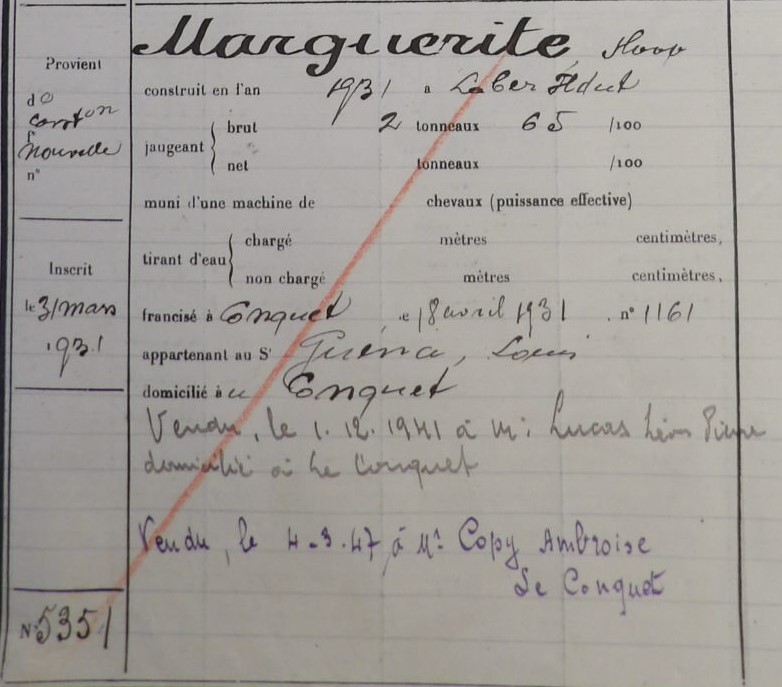 Marguerite Sloop
Provient
construit en l'an 1931 à Laber Ildut
de
Construction
jaugeant { brut 2 tonneaux 65 /100
Nouvelle
net tonneaux /100
n°
muni d'une machine de chevaux (puissance effective)
tirant d'eau { chargé mètres centimètres,
non chargé mètres centimètres,
Inscrit
le 31 mars
1931
francisé à Conquet le 18 avril 1931 . n° 1161
appartenant au Sr Guéna, Louis
domicilié à Conquet
Vendu, le 1.12.1941 à Mr Lucas Léon Pierre
domicilié à Le Conquet
Vendu, le 4-3-47 à Mr Copy Ambroise
Le Conquet
N° 5351